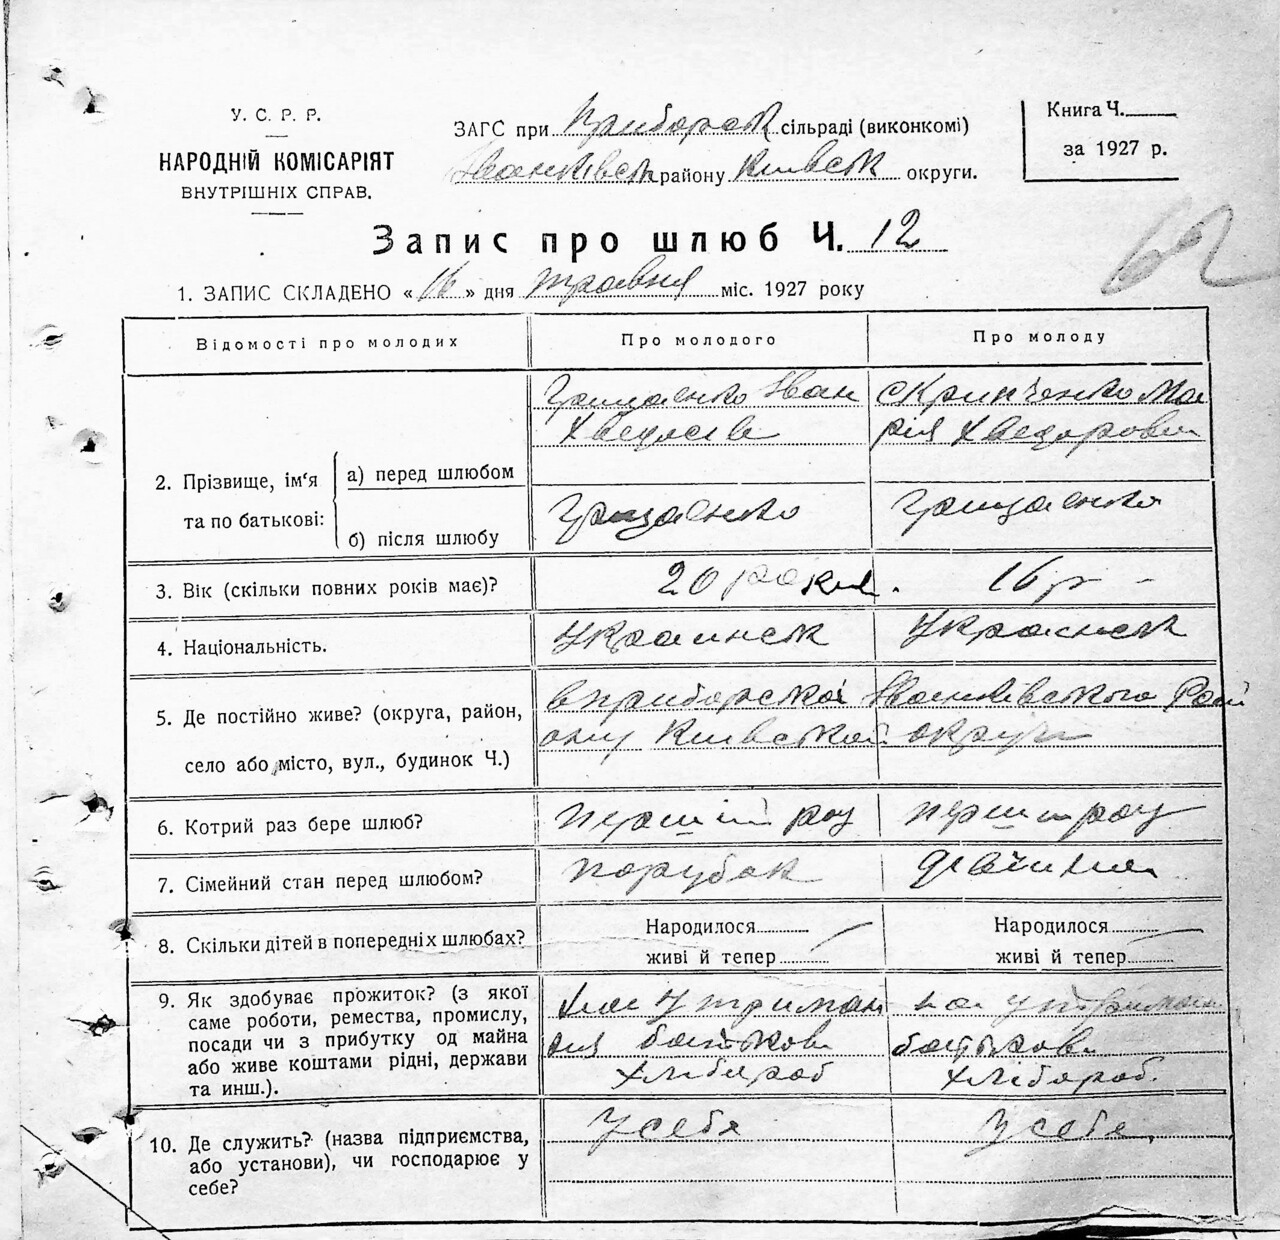 У. С. Р. Р.
НАРОДНІЙ КОМІСАРІЯТ
ВНУТРІШНІХ СПРАВ.
ЗАГС при Приборск сільраді (виконкомі)
Іванківськ району Київськ округи.
Книга Ч.
за 1927 р.
62
Запис про шлюб Ч. 12
1. ЗАПИС СКЛАДЕНО « 16 » дня травня міс. 1927 року
Відомості про молодих
Про молодого
Про молоду
2. Прізвище, ім'я
та по батькові:
а) перед шлюбом
б) після шлюбу
Грищенко Іван
Скрипченко Ма
рія Хведоровн
Грищенко
Грищенко
3. Вік (скільки повних років має)?
20 роки.
16 р
4. Національність.
Украинск
Украинск
5. Де постійно живе? (округа, район,
село або місто, вул., будинок Ч.)
в приборској Іванківського Рай
ону Київској округи
6. Котрий раз бере шлюб?
перший раз
перши раз
7. Сімейний стан перед шлюбом?
парубок
дівчина
8. Скільки дітей в попередніх шлюбах?
Народилося
живі й тепер
Народилося
живі й тепер
9. Як здобуває прожиток? (з якої
саме роботи, ремества, промислу,
посади чи з прибутку од майна
або живе коштами рідні, держави
та инш.).
на утриман
ня батькови
хлібороб
на утриман
батькови
хлібороб.
10. Де служить? (назва підприємства,
або установи), чи господарює у
себе?
У себя
У себе